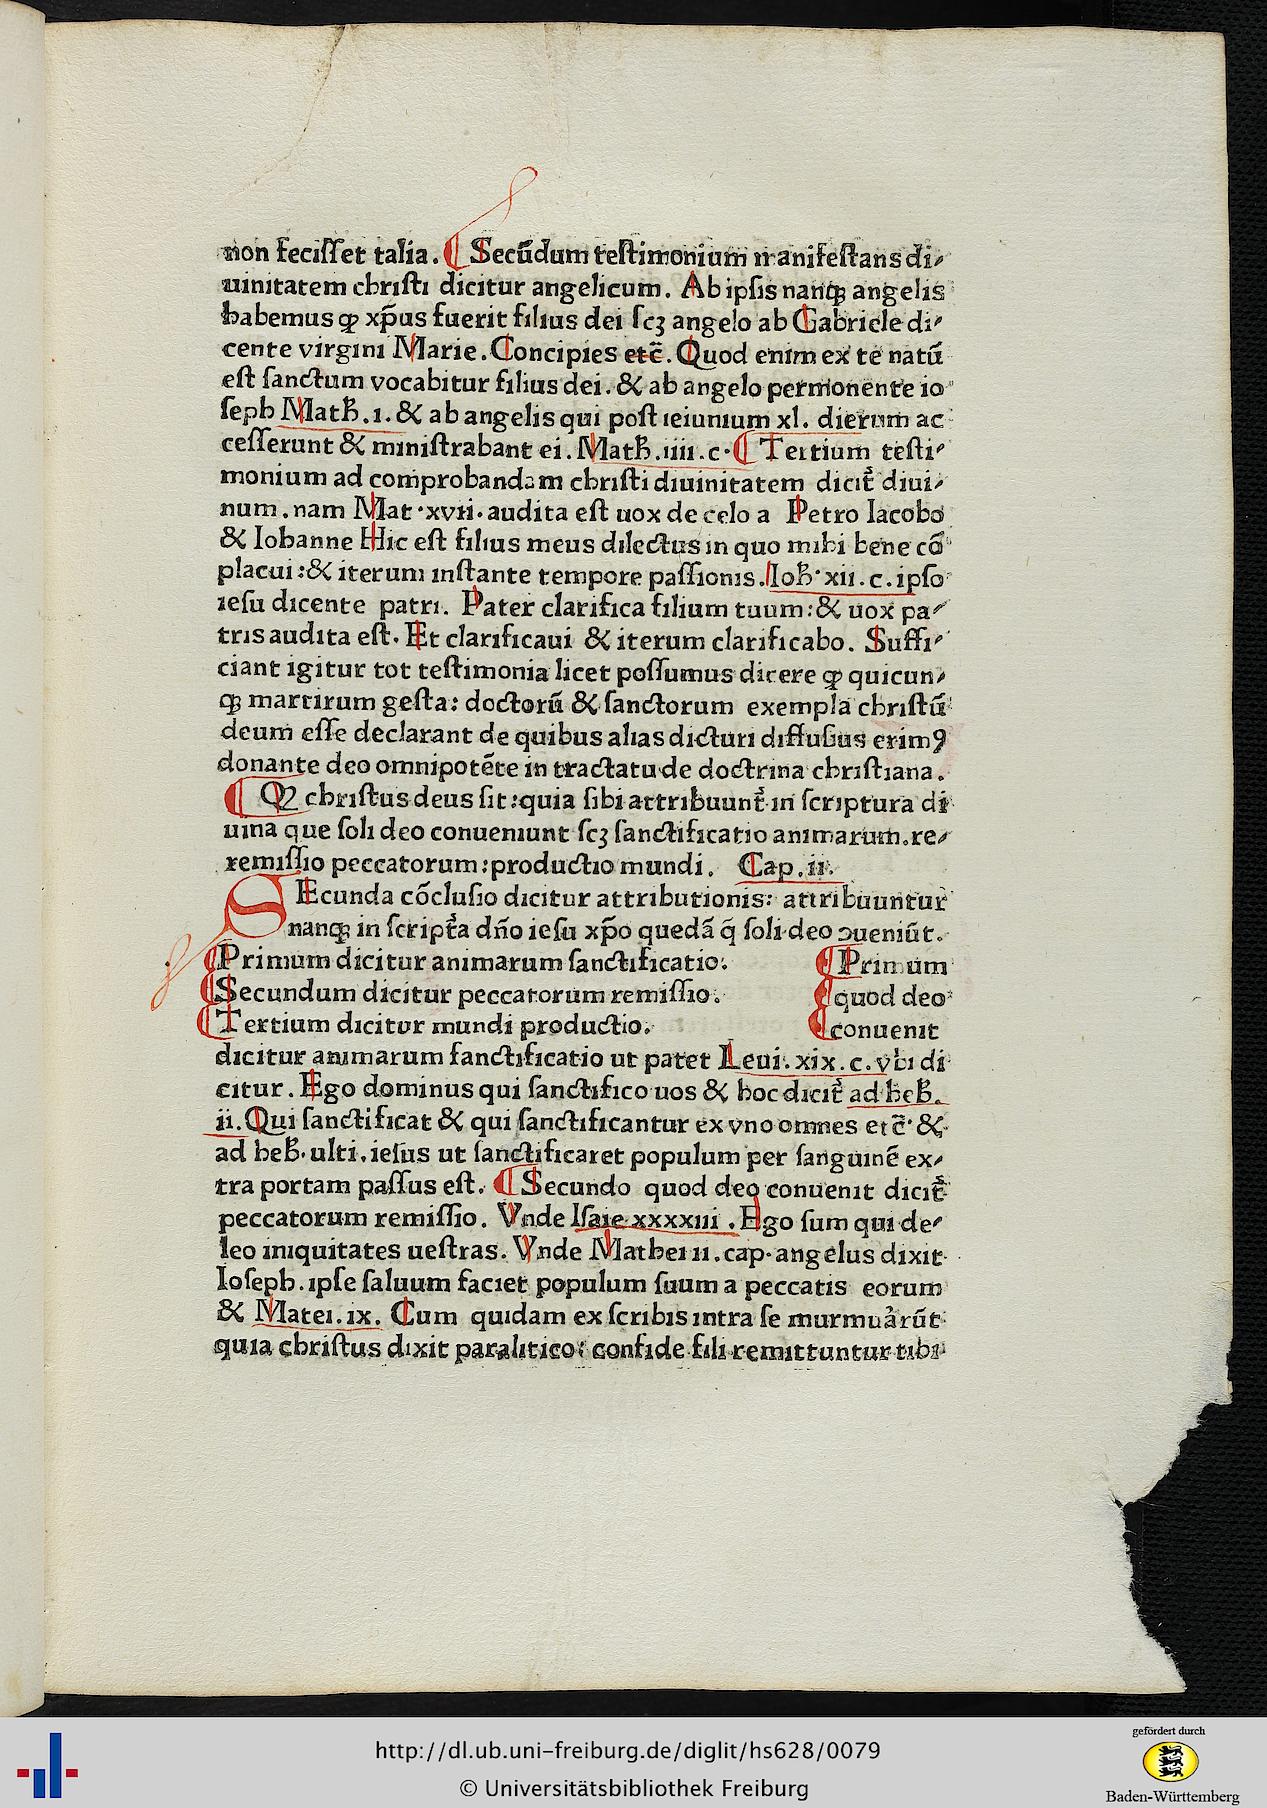 non feciſſet talia. ¶ Secūdum teſtimonium manifeſtans di⸗
uinitatem chriſti dicitur angelicum. Ab ipſis nanqꝫ angelis
habemus ꝙ xp̄us fuerit filius dei ſcꝫ angelo ab Gabriele di⸗
cente virgini Marie. Concipies etc̄. Quod enim ex te natū
eſt ſanctum vocabitur filius dei. & ab angelo permonente io⸗
ſeph Matħ.1. & ab angelis qui poſt ieiunium xl. dierum ac⸗
ceſſerunt & miniſtrabant ei. Matħ.iiii.c. ¶ Tertium teſti⸗
monium ad comprobandam chriſti diuinitatem dicit᷑ diui⸗
num. nam Mat.xvii. audita eſt uox de celo a Petro Iacobo
& Iohanne Hic eſt filius meus dilectus in quo mihi bene cō⸗
placui: & iterum inſtante tempore paſſionis. Ioħ.xii.c. ipſo
ieſu dicente patri. Pater clarifica filium tuum: & uox pa⸗
tris audita eſt. Et clarificaui & iterum clarificabo. Suffi⸗
ciant igitur tot teſtimonia licet poſſumus dicere ꝙ quicun⸗
qꝫ martirum geſta: doctorū & ſanctorum exempla chriſtū
deum eſſe declarant de quibus alias dicturi diffuſius erimꝰ
donante deo omnipotēte in tractatu de doctrina chriſtiana.
¶ Qꝫ chriſtus deus ſit: quia ſibi attribuunt᷑ in ſcriptura di
uina que ſoli deo conueniunt ſcꝫ ſanctificatio animarum. re⸗
remiſſio peccatorum: productio mundi. Cap.ii.
SEcunda cōcluſio dicitur attributionis: attribuuntur
nanqꝫ in ſcript᷑a dn̄o ieſu xp̄o quedā q̄ ſoli deo ↄueniūt.
¶ Primum dicitur animarum ſanctificatio: ¶ Primum
¶ Secundum dicitur peccatorum remiſſio. ¶ quod deo
¶ Tertium dicitur mundi productio. ¶ conuenit
dicitur animarum ſanctificatio ut patet Leui.xix.c. vbi di
citur. Ego dominus qui ſanctifico uos & hoc dicit᷑ ad heƀ.
ii. Qui ſanctificat & qui ſanctificantur ex vno omnes etc̄. &
ad heƀ. ulti. ieſus ut ſanctificaret populum per ſanguinē ex⸗
tra portam paſſus eſt. ¶ Secundo quod deo conuenit dicit᷑
peccatorum remiſſio. Vnde Iſaie xxxxiii. Ego ſum qui de⸗
leo iniquitates ueſtras. Vnde Mathei ii. cap. angelus dixit
Ioſeph. ipſe ſaluum faciet populum ſuum a peccatis eorum
& Matei.ix. Cum quidam ex ſcribis intra ſe murmuᷓrūt
quia chriſtus dixit paralitico: confide fili remittuntur tibi
http://dl.ub.uni-freiburg.de/diglit/hs628/0079
© Universitätsbibliothek Freiburg
gefördert durch
Baden-Württemberg